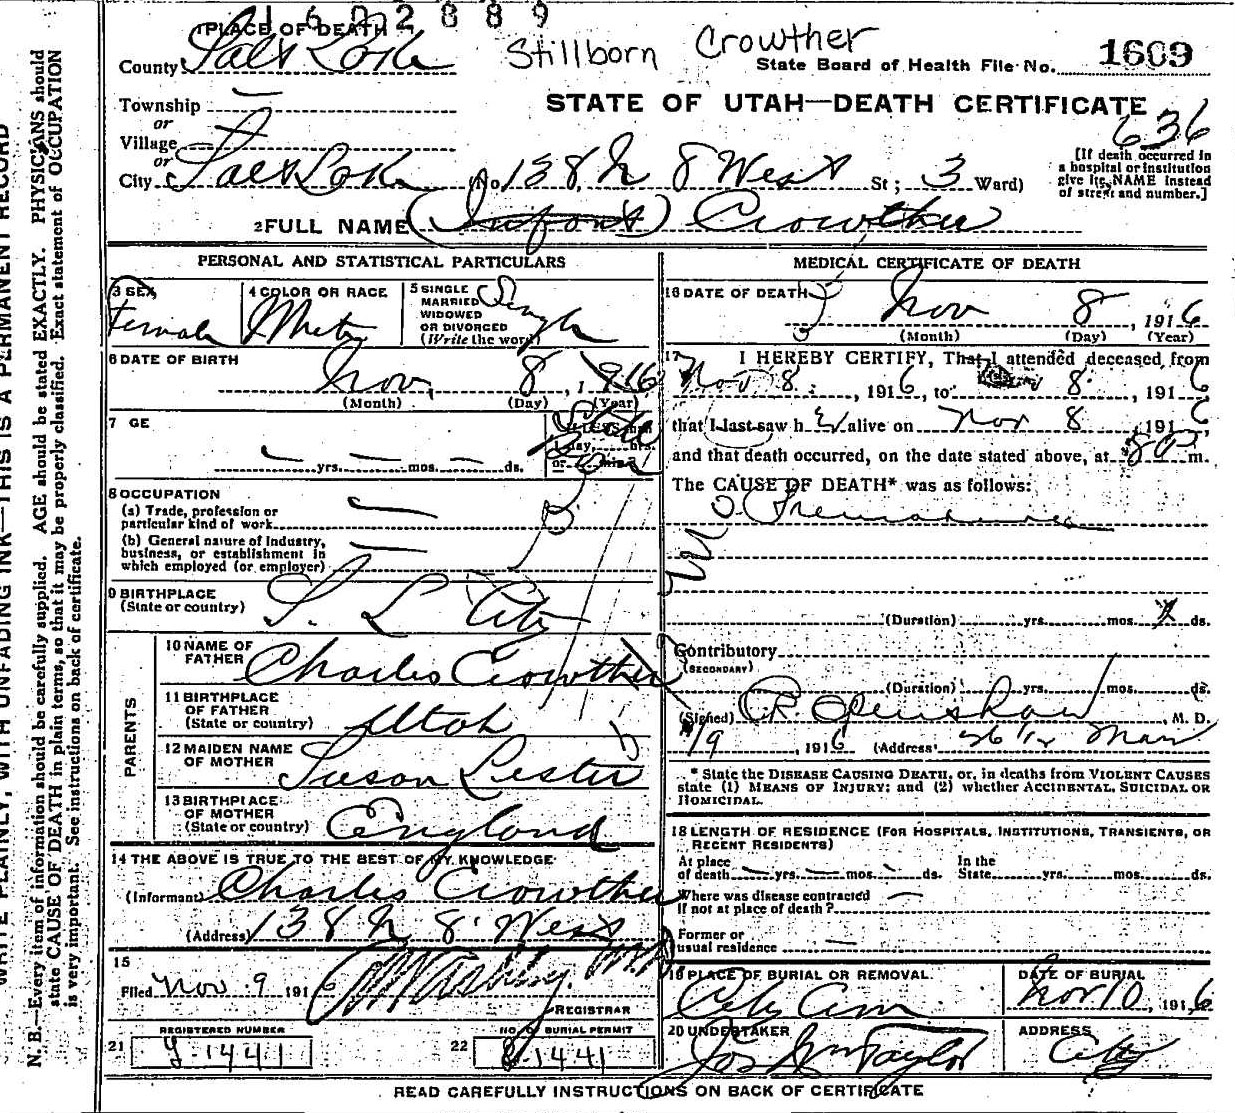 1 6 0 2 8 8 9
1 PLACE OF DEATH
Stillborn Crowther
County Salt Lake
State Board of Health File No. 1609
Township —
STATE OF UTAH—DEATH CERTIFICATE
or
636
Village
or
City Salt Lake (No. 138 N 8 West St; 3 Ward)
[If death occurred in
a hospital or institution
give its NAME instead
of street and number.]
2 FULL NAME (Infant) Crowther
PERSONAL AND STATISTICAL PARTICULARS
3 SEX
Female
4 COLOR OR RACE
White
5 SINGLE
MARRIED
WIDOWED
OR DIVORCED
(Write the word)
Single
6 DATE OF BIRTH
Nov 8, 1916
(Month) (Day) (Year)
7 GE
— yrs. — mos. — ds.
If LESS than
1 day, hrs.
or min.?
Still
Born
8 OCCUPATION
(a) Trade, profession or
particular kind of work —
(b) General nature of Industry,
business, or establishment in
which employed (or employer) —
9 BIRTHPLACE
(State or country) S. L City
PARENTS
10 NAME OF
FATHER Charles Crowther
11 BIRTHPLACE
OF FATHER
(State or country) Utah
12 MAIDEN NAME
OF MOTHER Susan Lester
13 BIRTHPLACE
OF MOTHER
(State or country) England
14 THE ABOVE IS TRUE TO THE BEST OF MY KNOWLEDGE
(Informant) Charles Crowther
(Address) 138 N 8 West
15
Filed Nov 9 1916
REGISTRAR
REGISTERED NUMBER
21 1441
NO. OF BURIAL PERMIT
22 1441
MEDICAL CERTIFICATE OF DEATH
16 DATE OF DEATH
Nov 8, 1916
(Month) (Day) (Year)
17 I HEREBY CERTIFY, That I attended deceased from
Nov 8, 1916, to 8, 1916
that I last saw her alive on Nov 8 1916,
and that death occurred, on the date stated above, at 8 P m.
The CAUSE OF DEATH* was as follows:
Premature
(Duration) yrs. mos. ds.
Contributory
(SECONDARY)
(Duration) yrs. mos. ds.
(Signed) R. Openshaw, M. D.
11/9, 1916 (Address) Main
* State the DISEASE CAUSING DEATH, or, in deaths from VIOLENT CAUSES
state (1) MEANS OF INJURY; and (2) whether ACCIDENTAL, SUICIDAL OR
HOMICIDAL.
18 LENGTH OF RESIDENCE (FOR HOSPITALS, INSTITUTIONS, TRANSIENTS, OR
RECENT RESIDENTS)
At place
of death — yrs. — mos. — ds.
In the
State yrs. mos. ds.
Where was disease contracted
if not at place of death? —
Former or
usual residence —
19 PLACE OF BURIAL OR REMOVAL
City Cem
DATE OF BURIAL
Nov 10, 1916
20 UNDERTAKER
Jos Wm Taylor
ADDRESS
City
READ CAREFULLY INSTRUCTIONS ON BACK OF CERTIFICATE
WRITE PLAINLY, WITH UNFADING INK—THIS IS A PERMANENT RECORD
N. B.—Every item of information should be carefully supplied. AGE should be stated EXACTLY. PHYSICIANS should
state CAUSE OF DEATH in plain terms, so that it may be properly classified. Exact statement of OCCUPATION
is very important. See instructions on back of certificate.